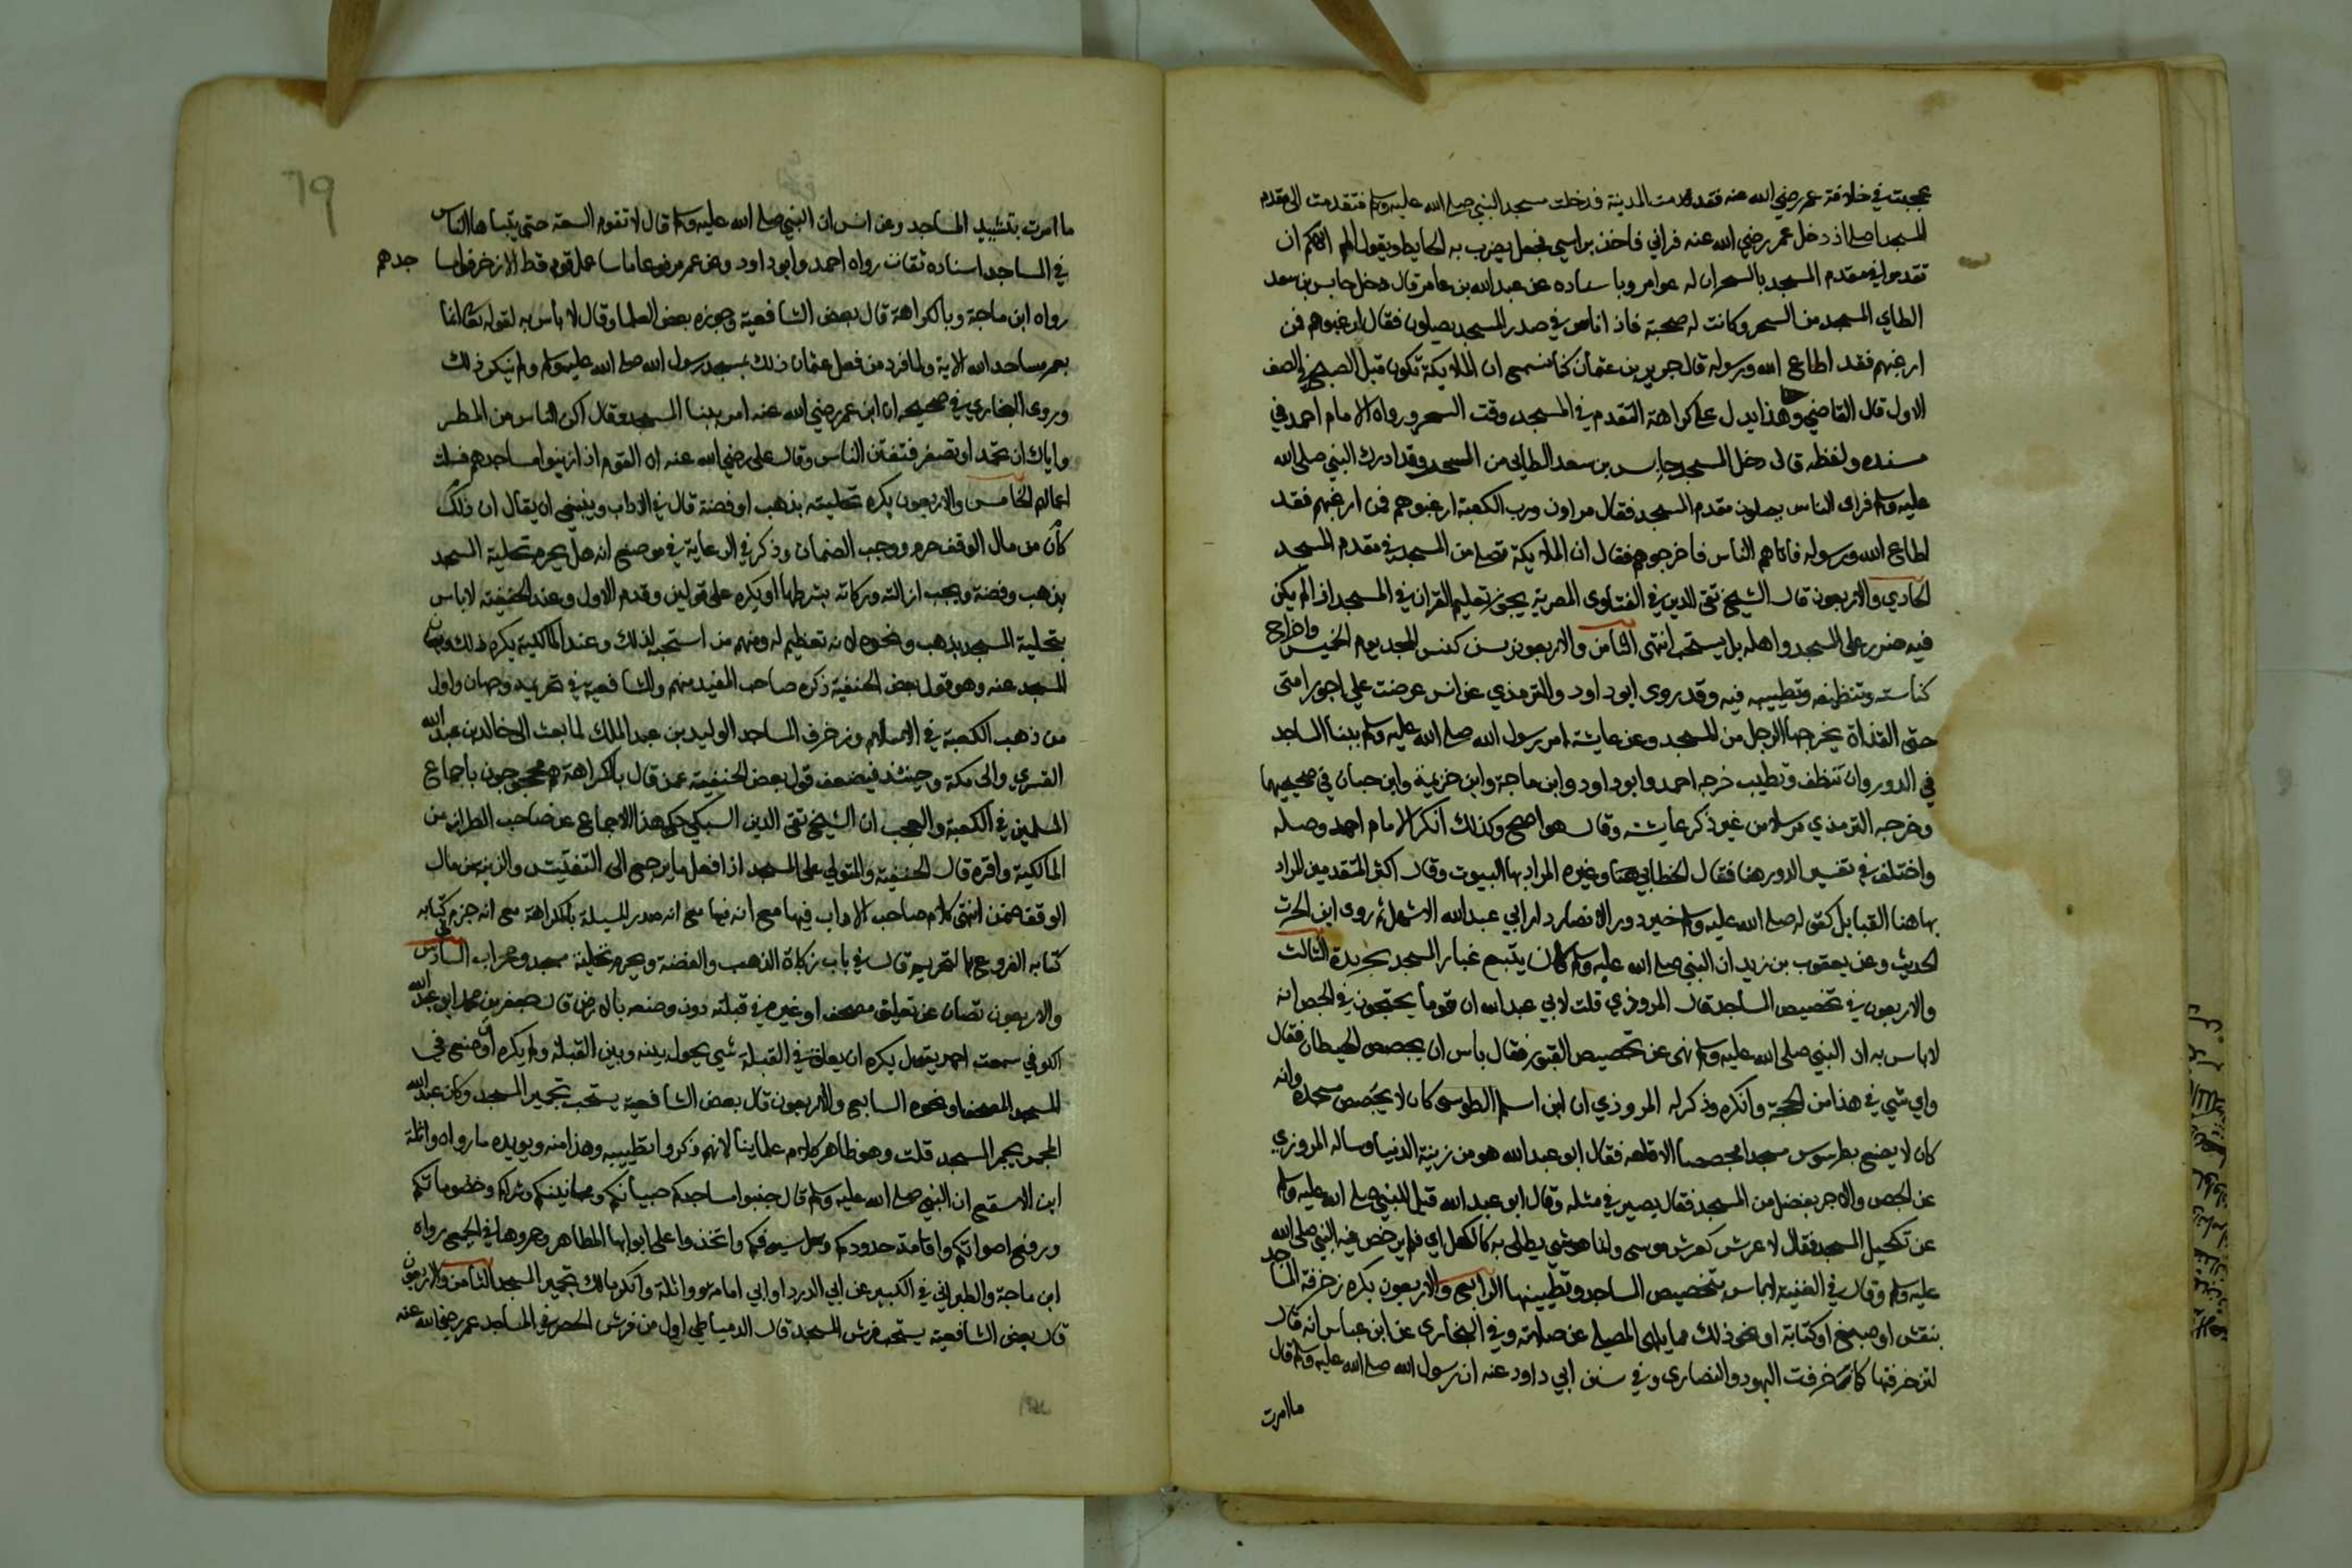 عججت في خلافة عمر رضي الله عنه فقدمت المدينة فدخلت مسجد النبي صلى الله عليه وسلم فتقدمت الى مقدم
المسجد اصلي اذ دخل عمر رضي الله عنه فراني فاخذ براسي فجعل يضرب به الحايط ويقول الم انهكم ان
تقدموا في مقدم المسجد بالسحر ان له عوامر وباسناده عن عبدالله بن عامر قال دخل حابس بن سعد
الطاي المسجد من السحر وكانت له صحبة فاذا ناس في صدر المسجد يصلون فقال ارعبوهم فمن
ارعبهم فقد اطاع الله ورسوله قال جرير بن عثمان كنا نسمع ان الملايكة تكون قبل الصبح في الصف
الاول قال القاضي وهذا يدل على كراهة التقدم في المسجد وقت السحر ورواه الامام احمد في
مسنده ولفظه قال دخل المسجد حابس بن سعد الطايي من السحر وقد ادرك النبي صلى الله
عليه وسلم فراى الناس يصلون مقدم المسجد فقال مراون ورب الكعبة ارعبوهم فمن ارعبهم فقد
اطاع الله ورسوله فاتاهم الناس فاخرجوهم فقال ان الملايكة تصلي من السحر في مقدم المسجد
الحادي والاربعون قال الشيخ تقي الدين في الفتاوى المصرية يجوز تعليم القران في المسجد اذا لم يكن
فيه ضرر على المسجد واهله بل يستحب انتهى الثامن والاربعون يسن كنس المسجد يوم الخميس واخراج
كناسته وتنظيفه وتطييبه فيه وقد روى ابو داود والترمذي عن انس عرضت علي اجور امتي
حتى القذاة يخرجها الرجل من المسجد وعن عايشة امر رسول الله صلى الله عليه وسلم ببنا المساجد
في الدور وان تنظف وتطيب خرجه احمد وابو داود وابن ماجة وابن خزيمة وابن حبان في صحيحيهما
وخرجه الترمذي مرسلا من غير ذكر عايشة وقال هو اصح وكذلك انكر الامام احمد وصله
واختلف في تفسير الدور هنا فقال الخطابي وغيره المراد بها البيوت وقال اكثر المتقدمين المراد
بها هنا القبايل كقوله صلى الله عليه وسلم خير دور الانصار دار ابي عبد الله الاشهل ثم روى ابن الحرث
الحديث وعن يعقوب بن زيد ان النبي صلى الله عليه وسلم كان يتبع غبار المسجد بجريدة الثالث
والاربعون في تجصيص المساجد قال المروذي قلت لابي عبد الله ان قوما يحتجون في الجص انه
لا باس به ان النبي صلى الله عليه وسلم نهى عن تجصيص القبور فقال باس ان يجصص الحيطان فقال
واي شي في هذا من الحجة وانكره وذكر له المروذي ان ابن اسلم الطوسي كان لا يجصص مسجده وانه
كان لا يضع بطرسوس مسجدا مجصصا الا قلعه فقال ابو عبد الله هو من زينة الدنيا وساله المروزي
عن الجص والاجر يفضل من المسجد فقال يصير في مثله وقال ابو عبد الله قيل للنبي صلى الله عليه وسلم
عن تكحيل المسجد فقال لا عرش كعرش موسى وانما هو شي يطلى به كالكحل اي فلم يرخص فيه النبي صلى الله
عليه وسلم وقال في الغنية لا باس بتجصيص المساجد وتطيينها الرابع والاربعون يكره زخرفة المساجد
بنقش او صبغ او كتابة او نحو ذلك مما يلهي المصلي عن صلاته وفي البخاري عن ابن عباس انه قال
لتزخرفنها كما زخرفت اليهود والنصارى وفي سنن ابي داود عنه ان رسول الله صلى الله عليه وسلم قال
ما امرت
69
ما امرت بتشييد المساجد وعن انس ان النبي صلى الله عليه وسلم قال لا تقوم الساعة حتى يتباها الناس
في المساجد اسناده ثقات رواه احمد وابو داود وعن عمر مرفوعا ما سا عمل قوم قط الا زخرفوا مساجدهم
رواه ابن ماجة وبالكراهة قال بعض الشافعية وجوزه بعض العلما وقال لا باس به لقوله تعالى انما
يعمر مساجد الله الاية ولما فرد من فعل عثمان ذلك بمسجد رسول الله صلى الله عليه وسلم ولم ينكر ذلك
وروى البخاري في صحيحه ان ابن عمر رضي الله عنه امر ببنا المسجد وقال اكن الناس من المطر
واياك ان تحمر او تصفر فتفتن الناس وقال علي رضي الله عنه ان القوم اذا زينوا مساجدهم فسدت
اعمالهم الخامس والاربعون يكره تحليته بذهب او فضة قال في الاداب وينبغي ان يقال ان ذلك
كان من مال الوقف حرم ووجب الضمان وذكر في الرعاية في موضع انه هل يحرم تحلية المسجد
بذهب وفضة ويجب ازالته وزكاته بشرطها او يكره على قولين وقدم الاول وعند الحنفية لا باس
بتحلية المسجد بذهب ونحوه لانه تعظيم له ومنهم من استحبه لذلك وعند المالكية يكره ذلك ويصان
المسجد عنه وهو قول بعض الحنفية ذكره صاحب المفيد منهم وللشافعية في تحريمه وجهان واول
من ذهب الكعبة في الاسلام وزخرف المساجد الوليد بن عبد الملك لما بعث الى خالد بن عبد الله
القسري والي مكة وحينئذ فيضعف قول بعض الحنفية عمن قال بالكراهة هم محجوجون باجماع
المسلمين في الكعبة والعجب ان الشيخ تقي الدين السبكي حكى هذا الاجماع عن صاحب الطراز من
المالكية واقره قال الحنفية والمتولي على المسجد اذا فعل ما يرجع الى التفتيش والزينة من مال
الوقف ضمن انتهى كلام صاحب الاداب فيها مع انه فيها مع انه صدر المسيلة بالكراهة مع انه جزم في كتابه
كتابه الفروع بالتحريم قال في باب زكاة الذهب والفضة ويحرم تحلية مسجد ومحراب السادس
والاربعون تصان عن تعليق مصحف او غيره في قبلته دون وضعه بالارض قال جعفر بن محمد ابو عبد الله
الكوفي سمعت احمد يقول يكره ان يعلق في القبلة شي يحول بينه وبين القبلة ولم يكره ان وضع في
المسجد المصحف او نحوه السابع والاربعون قال بعض الشافعية يستحب تجمير المسجد وكان عبد الله
المجمر يجمر المسجد قلت وهو ظاهر كلام علماينا لانهم ذكروا تطييبه وهذا منه ويويده ما رواه واثلة
ابن الاسقع ان النبي صلى الله عليه وسلم قال جنبوا مساجدكم صبيانكم ومجانينكم وشراكم وخصوماتكم
ورفع اصواتكم واقامة حدودكم وسل سيوفكم واتخذوا على ابوابها المطاهر وجمروها في الجمع رواه
ابن ماجة والطبراني في الكبير عن ابي الدردا وابي امامة وواثلة وانكر مالك تجمير المسجد الثامن والاربعون
قال بعض الشافعية يستحب فرش المسجد قال الدمياطي اول من فرش الحصر في المساجد عمر رضي الله عنه